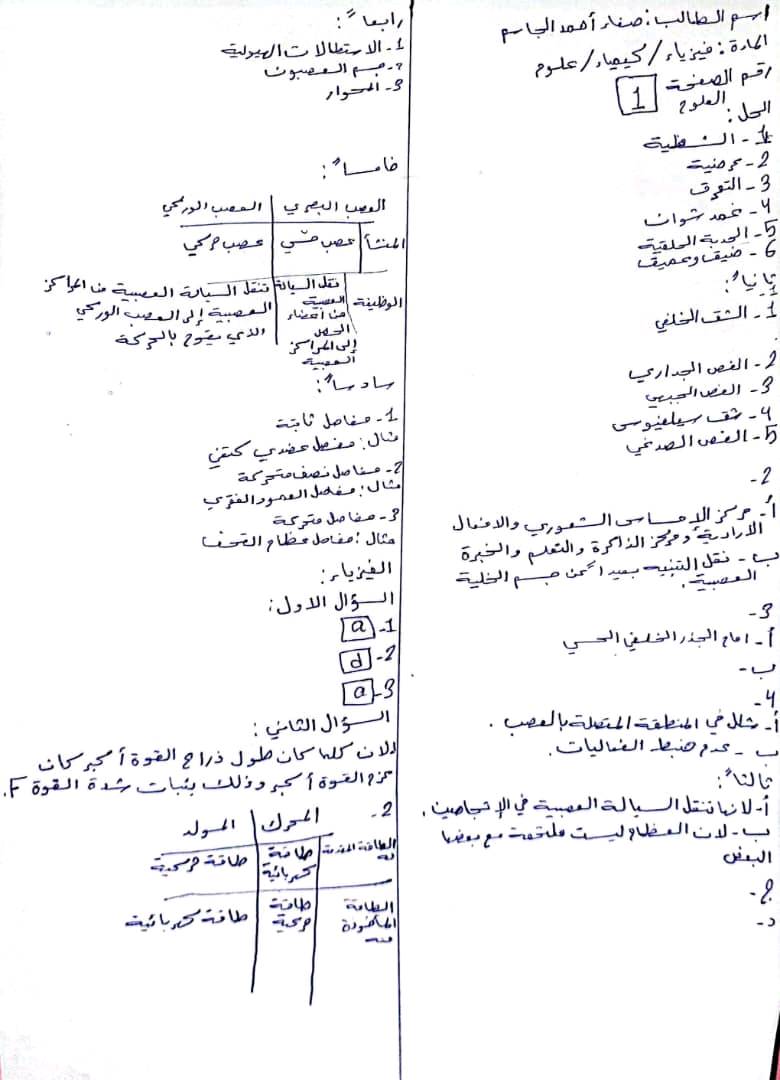 اسم الطالب: صفاء أحمد الجاسم
المادة: فيزياء / كيمياء / علوم
رقم الصفحة 1
العلوم
الحل:
1- الشظية
2- عرضية
3- التعرق
4- غمد شوان
5- الحدبة الحلقية
6- ضيق وعميق
ثانياً:
1- الشق الخلفي
2- الفص الجداري
3- الفص الجبهي
4- شق سيلفيوس
5- الفص الصدغي
2-
أ- مركز الإحساس الشعوري والافعال
الارادية ومركز الذاكرة والتعلم والخبرة
ب- نقل التنبيه بعيداً عن جسم الخلية
العصبية.
3-
أ- امام الجذر الخلفي الحسي
ب-
4-
أ- شلل في المنطقة المتصلة بالعصب.
ب- عدم ضبط الفعاليات.
ثالثاً:
أ- لانها تنقل السيالة العصبية في الإتجاهين.
ب- لان العظام ليست ملتحمة مع بعضها
البعض
ج-
د-
رابعاً:
1- الاستطالات الهيولية
2- جسم العصبون
3- المحوار
خامساً:
العصب البصري | العصب الوركي
المنشأ | عصب حسّي | عصب حركي
الوظيفة | نقل السيالة | تنقل السيالة العصبية من المراكز
العصبية | العصبية إلى العصب الوركي
من أعضاء | الذي يقوم بالحركة
الحس
إلى المراكز
العصبية
سادساً:
1- مفاصل ثابتة
مثال: مفصل عضدي كتفي
2- مفاصل نصف متحركة
مثال: مفصل العمود الفقري
3- مفاصل متحركة
مثال: مفاصل عظام القحف
الفيزياء:
السؤال الاول:
1- a
2- d
3- a
السؤال الثاني:
لان كلما كان طول ذراع القوة أكبر كان
عزم القوة أكبر وذلك بثبات شدة القوة F.
2-
المحرك | المولد
الطاقة المقدمة | طاقة | طاقة حركية
له | كهربائية
الطاقة | طاقة | طاقة كهربائية
المأخوذة | حركية
منه